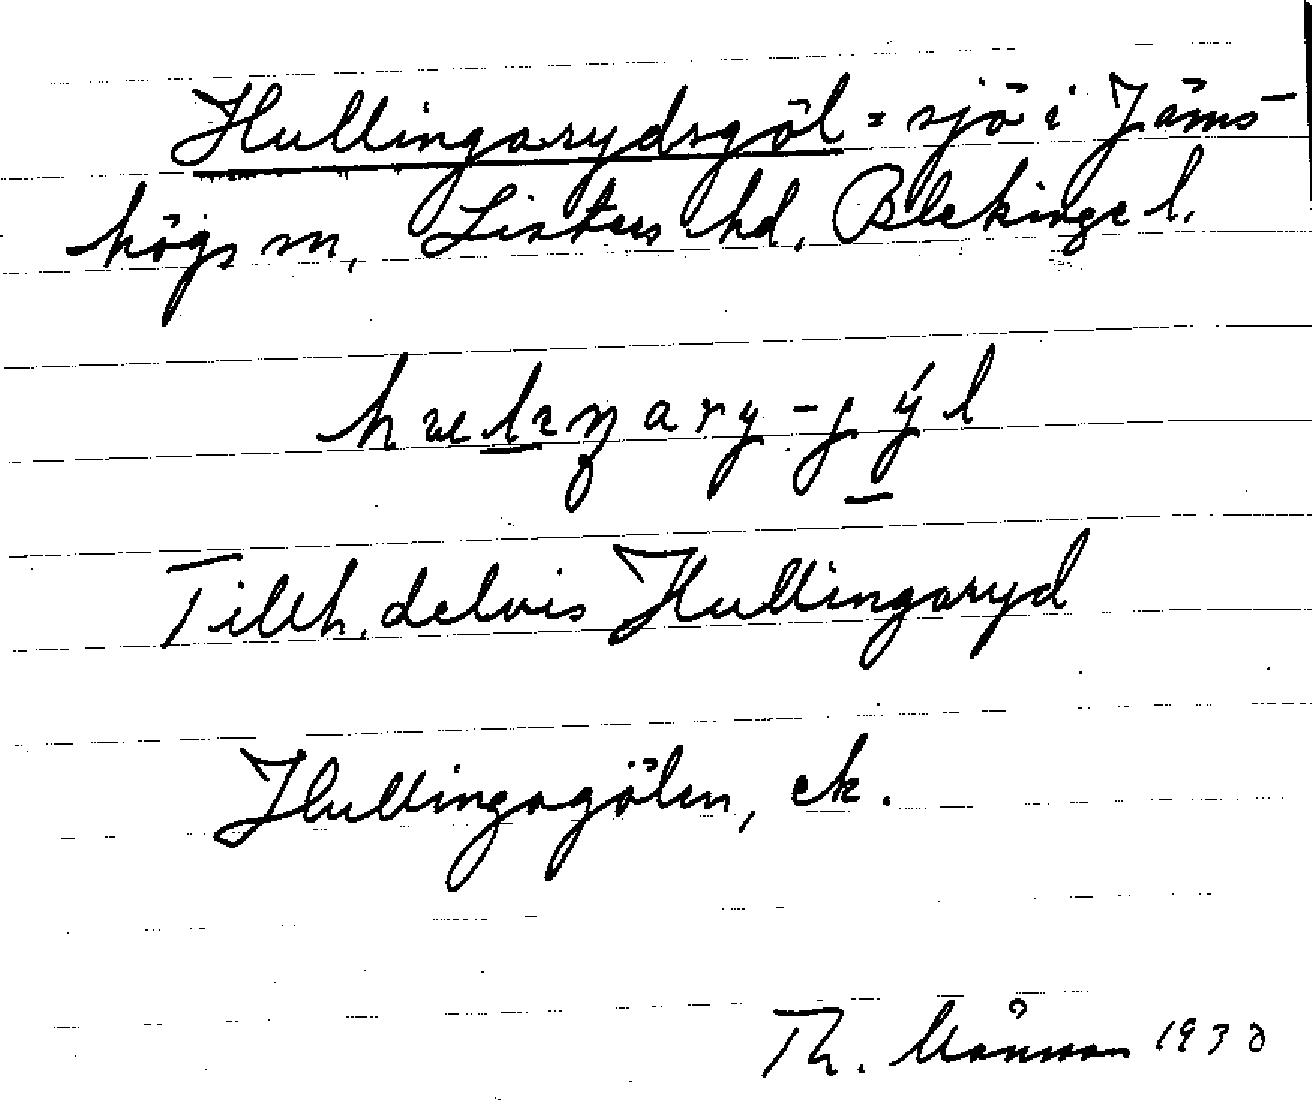 Hullingarydsgöl = sjö i Jäms-
högs sn, Listers hd, Blekinge l.
Tillh. delvis Hullingaryd
Hullingagölen, ek.
Th. Månsson 1930